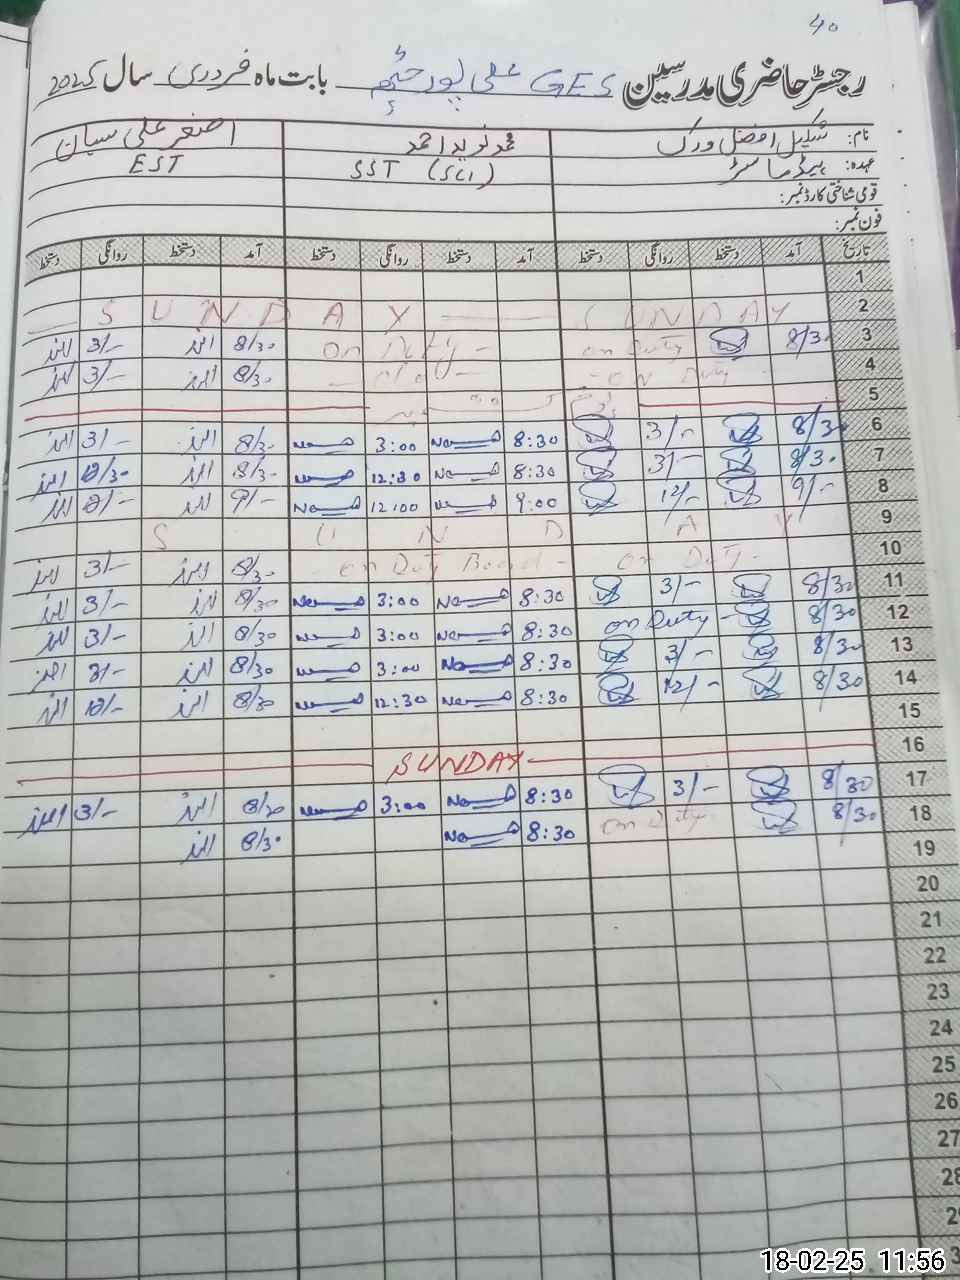 40
رجسٹر حاضری مدرسین GES علی پور چٹھہ بابت ماہ فروری سال 2025ء
نام: شکیل افضل ورک محمد نوید احمد اصغر علی سیان
عہدہ: ہیڈ ماسٹر SST (SCI) EST
قومی شناختی کارڈ نمبر:
فون نمبر:
تاریخ آمد دستخط روانگی دستخط آمد دستخط روانگی دستخط آمد دستخط روانگی دستخط
1
2 SUNDAY SUNDAY
3 8/30 on Duty on Duty 8/30 3/-
4 on Duty 8/30 3/-
5 یوم کشمیر
6 8/30 3/- 8:30 3:00 8/30 3/-
7 8/30 3/- 8:30 12:30 8/30 12/30
8 9/- 12/- 9:00 12:00 9/- 12/-
9 SUNDAY
10 on Duty on Duty Board 8/30 3/-
11 8/30 3/- 8:30 3:00 8/30 3/-
12 8/30 on Duty 8:30 3:00 8/30 3/-
13 8/30 3/- 8:30 3:00 8/30 3/-
14 8/30 12/- 8:30 12:30 8/30 12/-
15
16 SUNDAY
17 8/30 3/- 8:30 3:00 8/30 3/-
18 8/30 on Duty 8:30 8/30
19
20
21
22
23
24
25
26
27
28
18-02-25 11:56